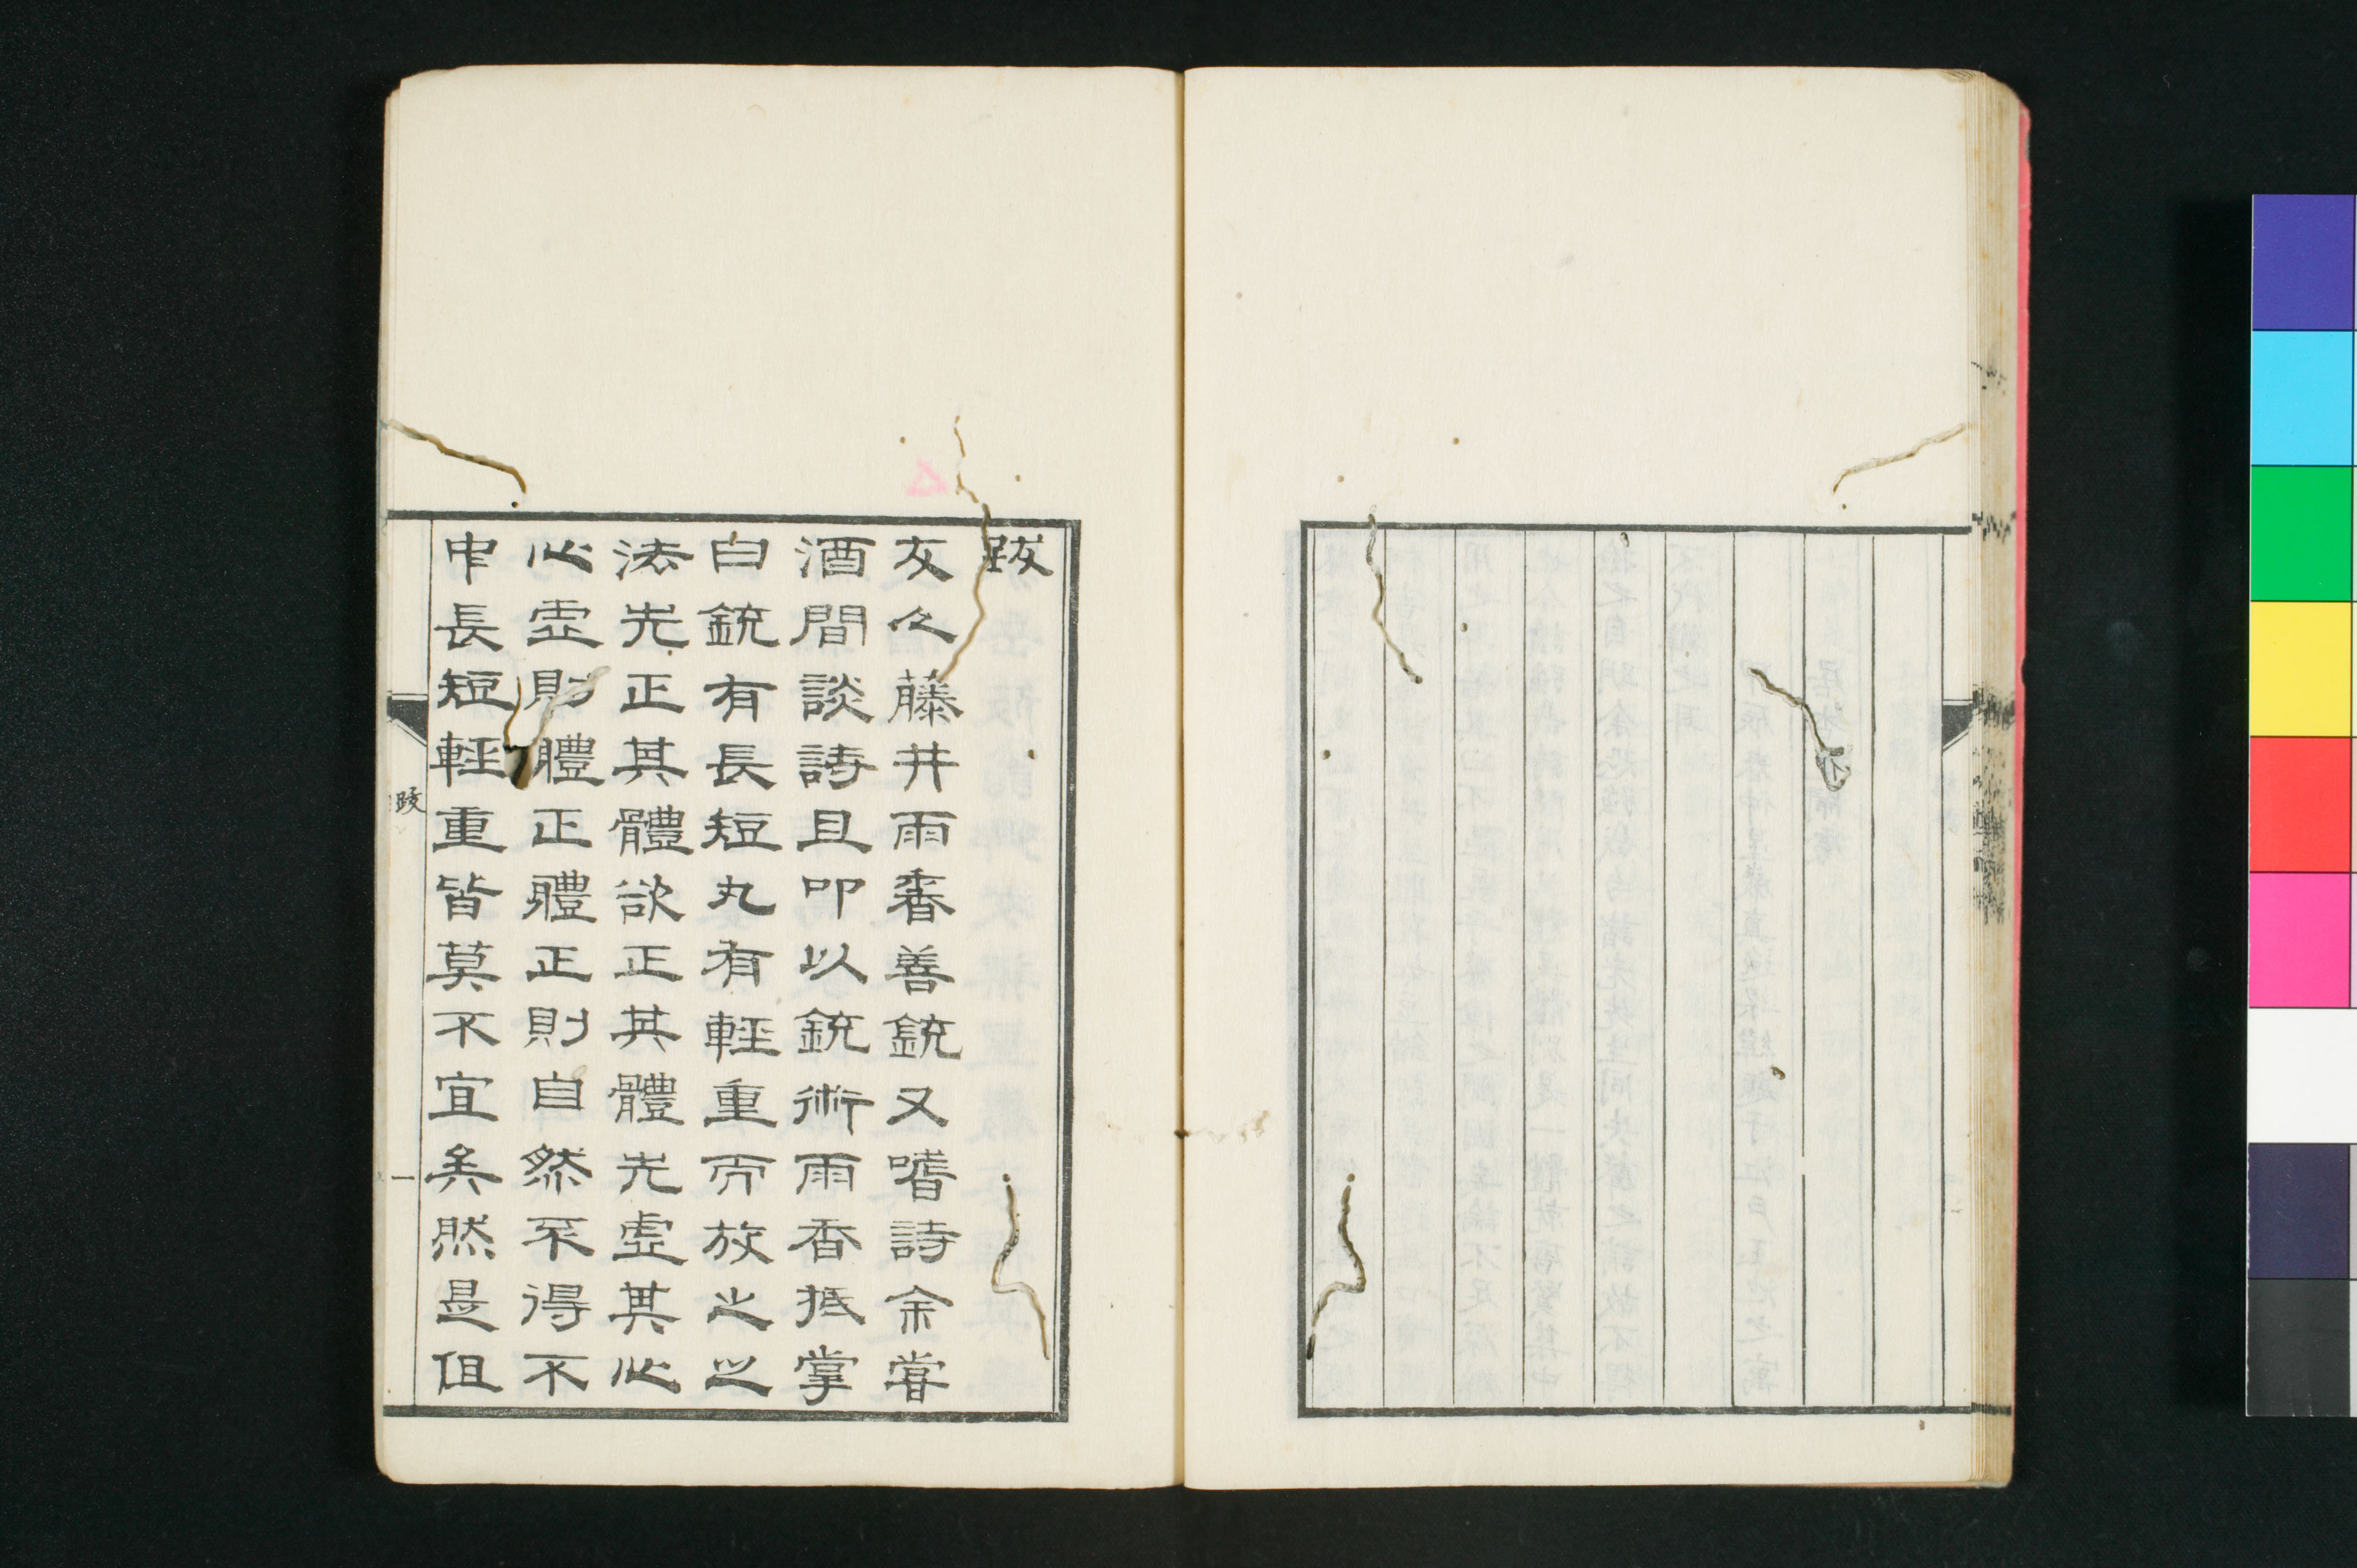 跋
友人藤井雨香善銃又嗜詩余嘗
酒間談詩且叩以銃術雨香抵掌
曰銃有長短丸有輕重而放之之
法先正其體欲正其體先虛其心
心虛則體正體正則自然不得不
中長短輕重皆莫不宜矣然是但
跋
一